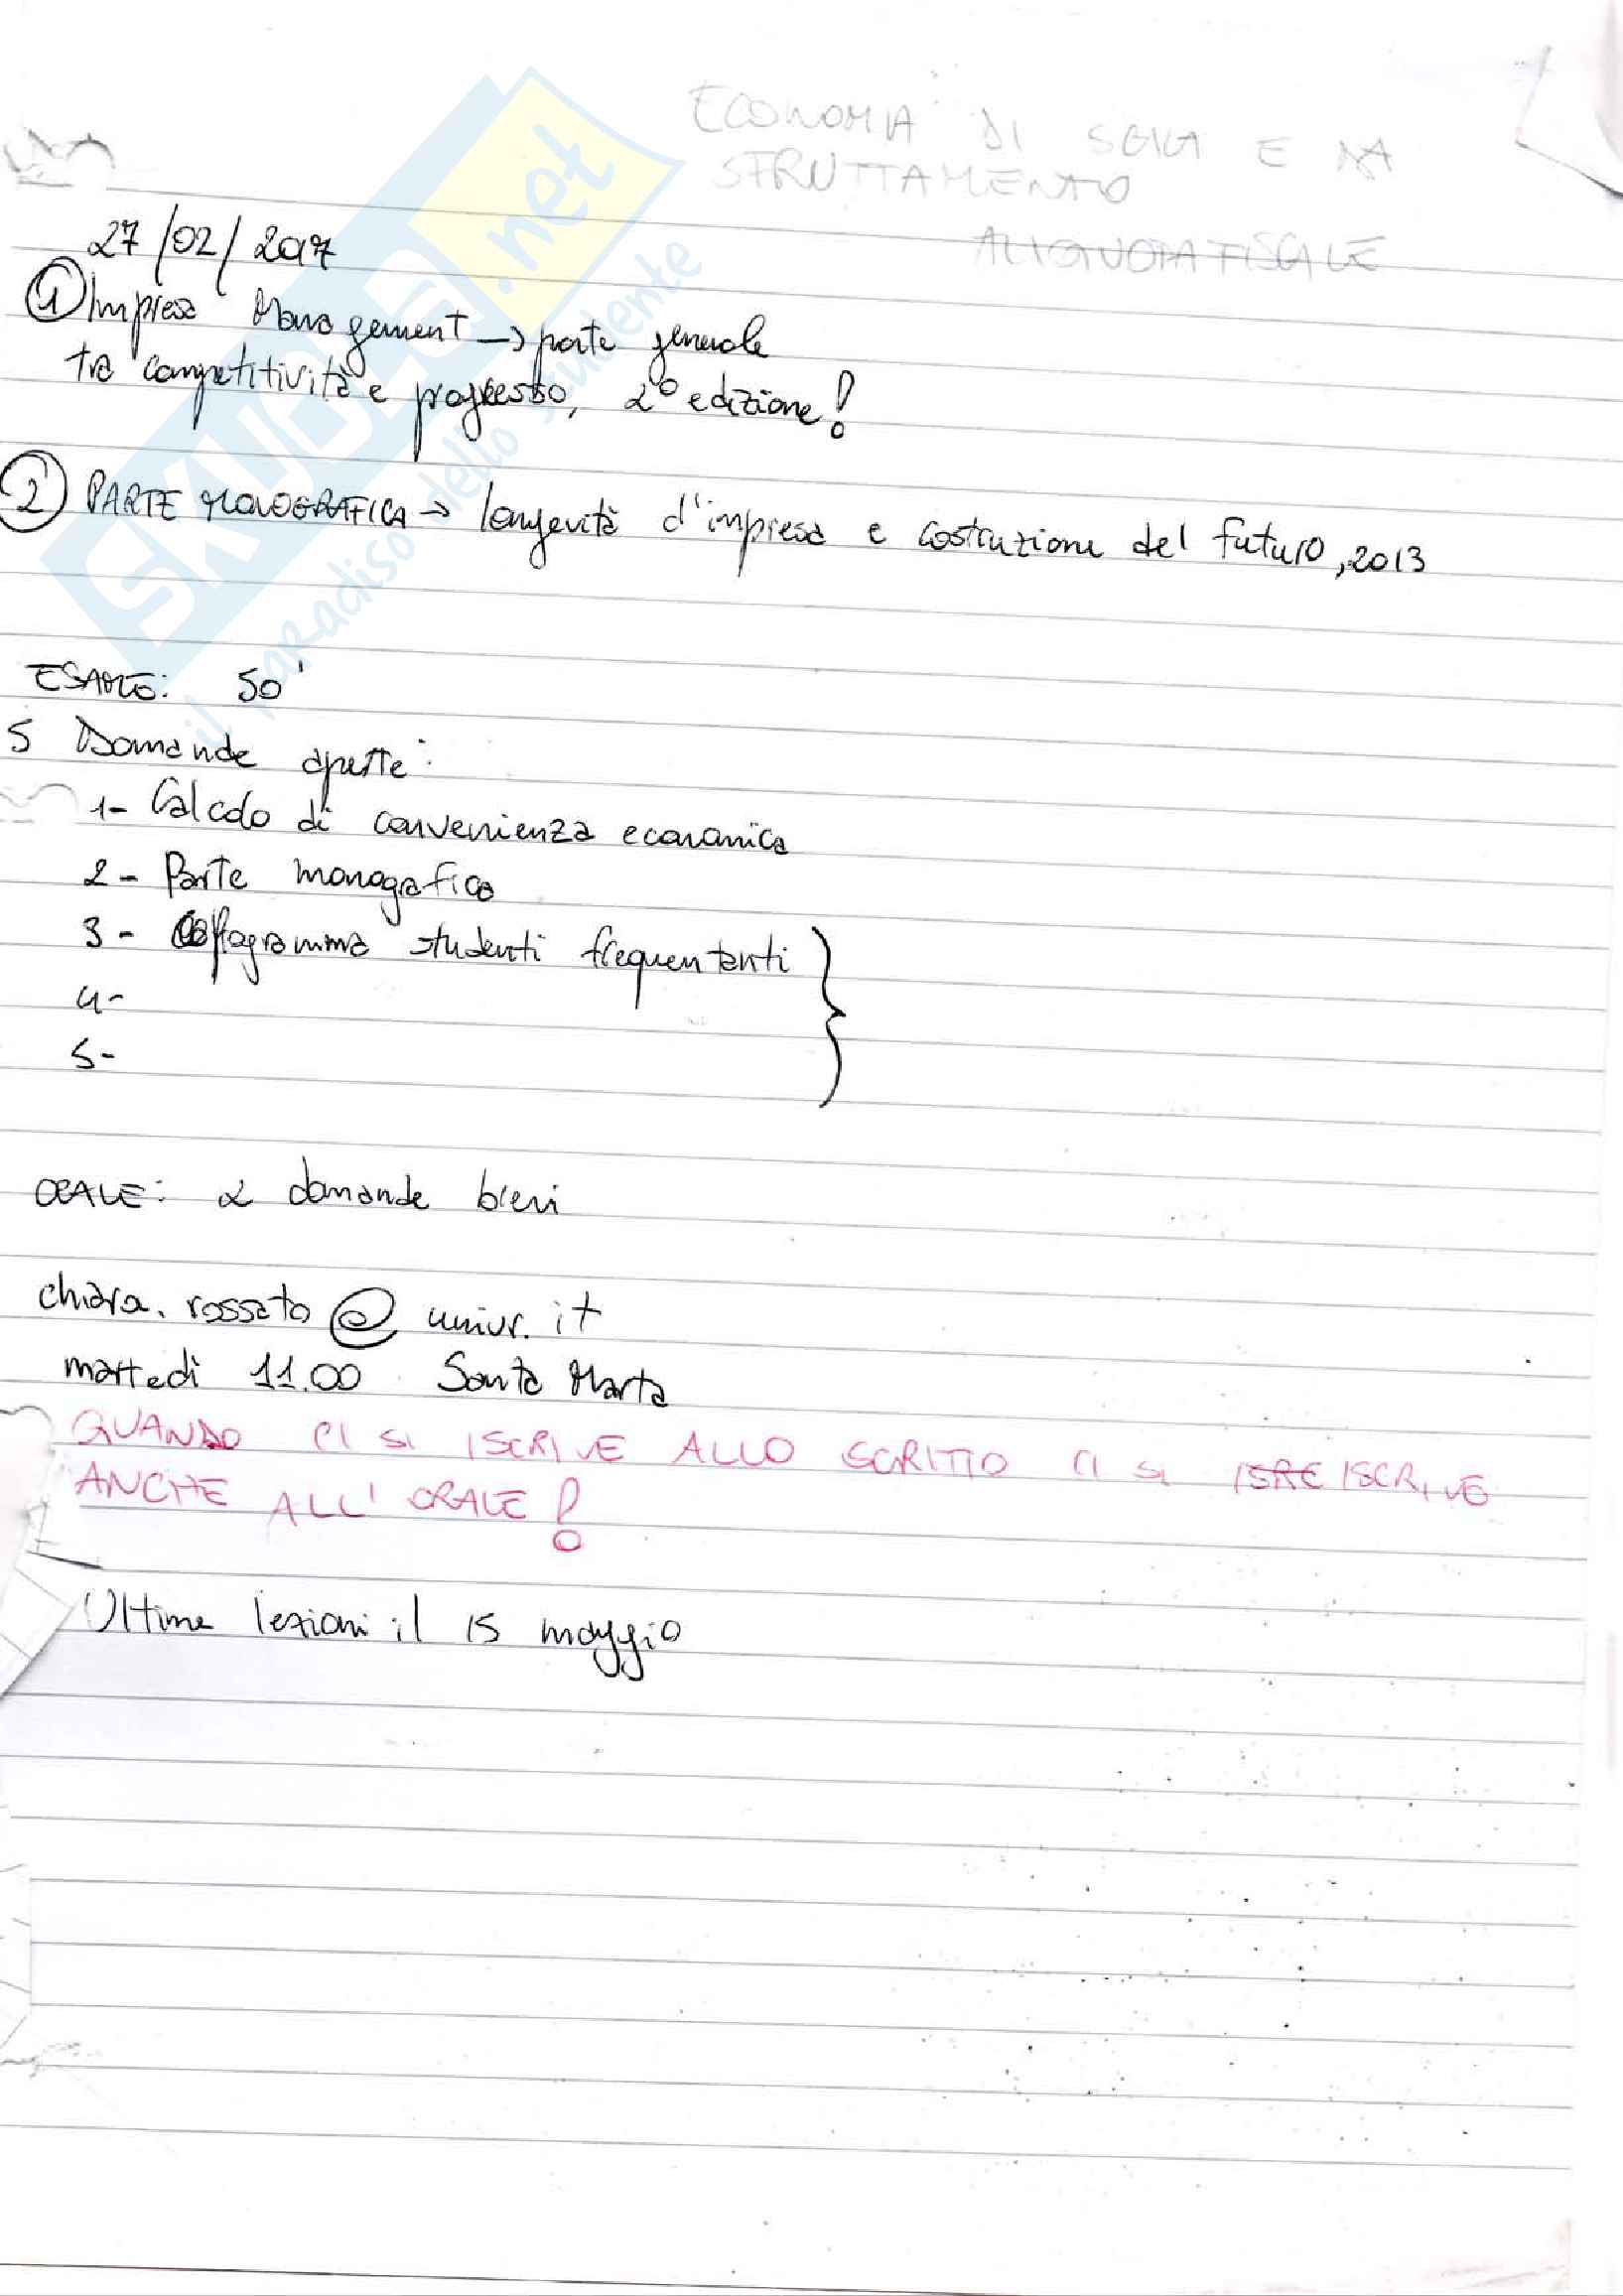 ECONOMIA DI SCALA E DA
SFRUTTAMENTO
ALIQUOTA FISCALE
27/02/2017
① Impresa Management → parte generale
tra competitività e progresso, 2° edizione!
② PARTE MONOGRAFICA → longevità d'impresa e costruzione del futuro, 2013
ESAME: 50'
5 Domande aperte:
1- Calcolo di convenienza economica
2- Parte monografica
3- programma studenti frequentanti }
4-
5-
ORALE: 2 domande brevi
chiara.rossato@univr.it
martedì 11.00 Santa Marta
QUANDO CI SI ISCRIVE ALLO SCRITTO CI SI ISCRIVE
ANCHE ALL'ORALE!
Ultime lezioni il 15 maggio
SKUOLA.net
il paradiso dello studente